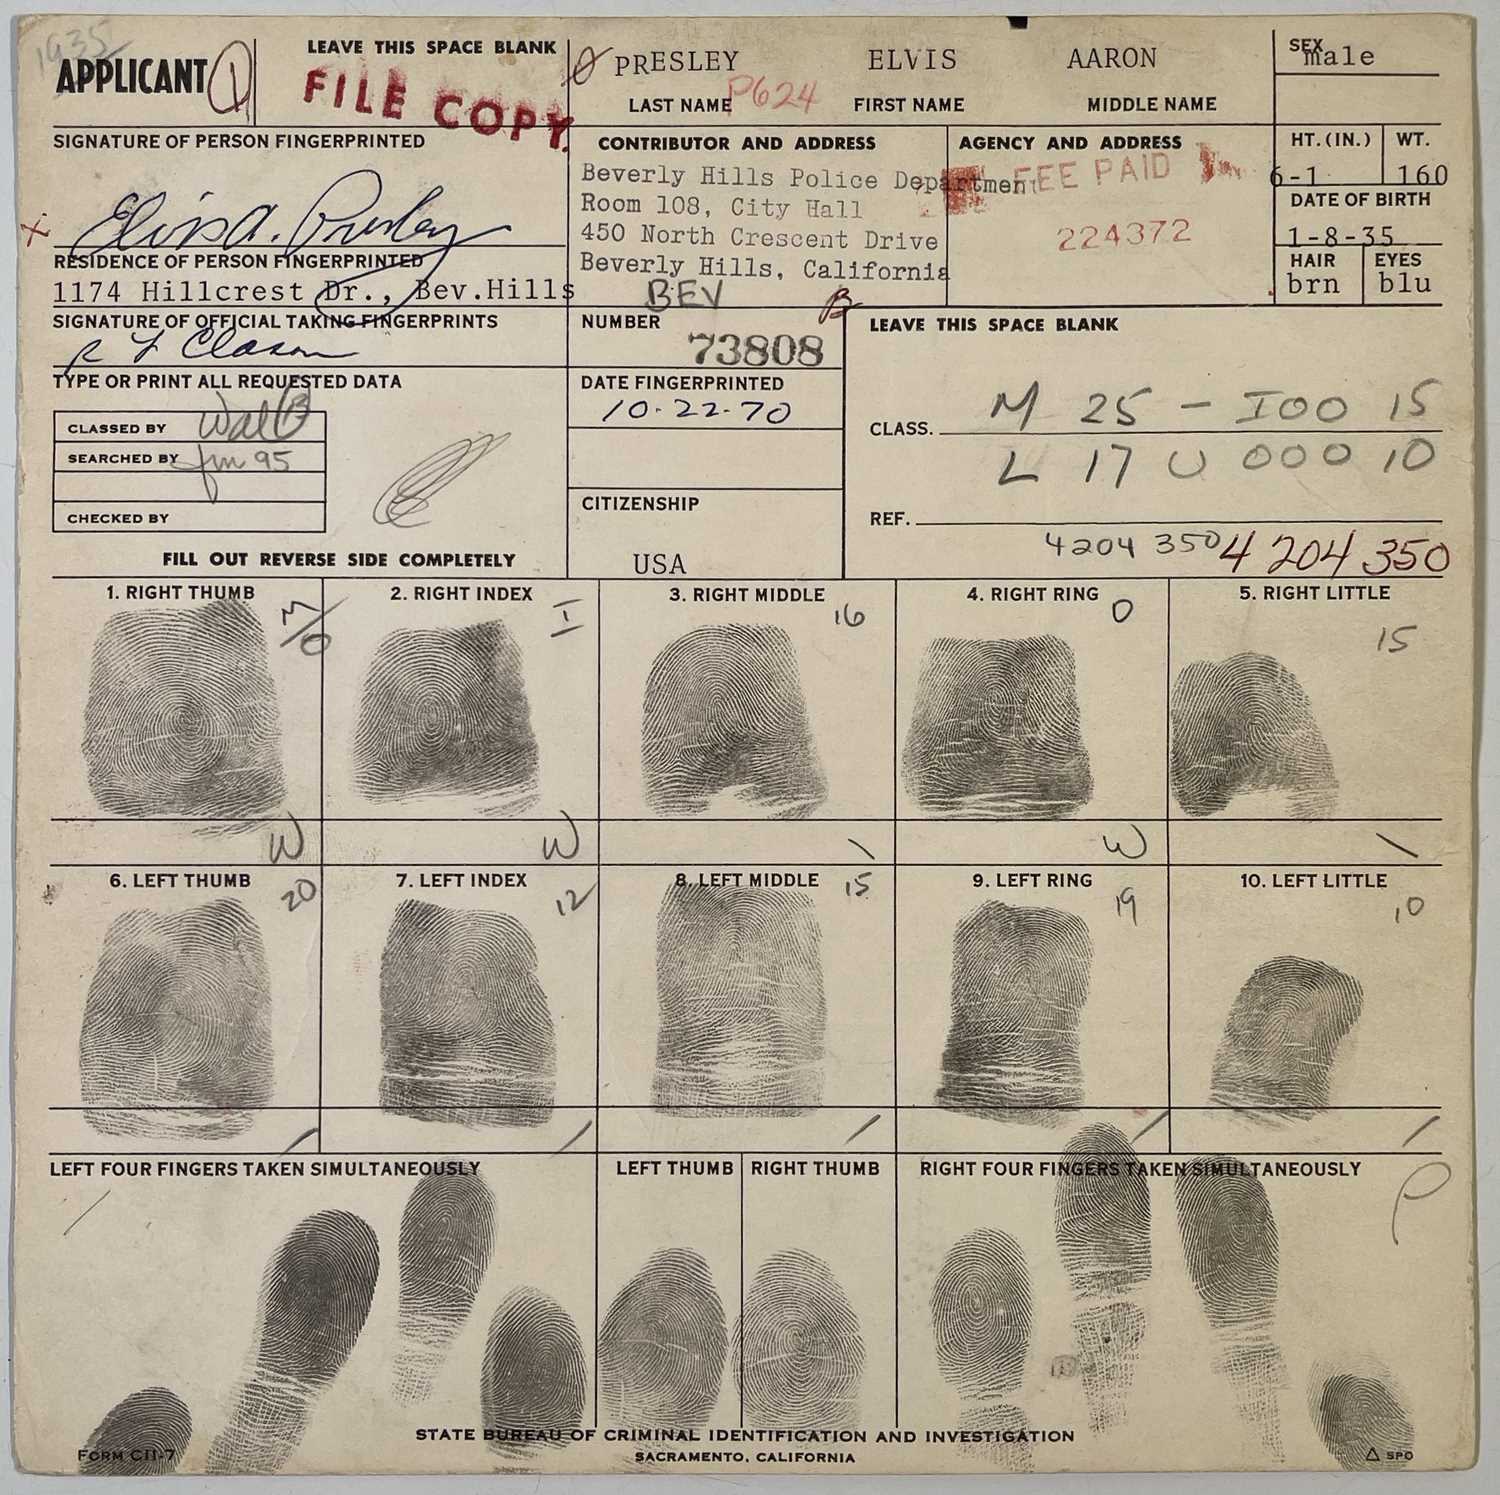 1935
APPLICANT 1
LEAVE THIS SPACE BLANK
FILE COPY
PRESLEY ELVIS AARON
LAST NAME P624 FIRST NAME MIDDLE NAME
SEX
male
SIGNATURE OF PERSON FINGERPRINTED
Elvis A. Presley
RESIDENCE OF PERSON FINGERPRINTED
1174 Hillcrest Dr., Bev.Hills
SIGNATURE OF OFFICIAL TAKING FINGERPRINTS
CONTRIBUTOR AND ADDRESS
Beverly Hills Police Department
Room 108, City Hall
450 North Crescent Drive
Beverly Hills, California
BEV
AGENCY AND ADDRESS
FEE PAID
224372
HT.(IN.) WT.
6-1 160
DATE OF BIRTH
1-8-35
HAIR EYES
brn blu
TYPE OR PRINT ALL REQUESTED DATA
CLASSED BY
SEARCHED BY 95
CHECKED BY
FILL OUT REVERSE SIDE COMPLETELY
NUMBER
73808
DATE FINGERPRINTED
10-22-70
CITIZENSHIP
USA
LEAVE THIS SPACE BLANK
CLASS. M 25 - IOO 15
L 17 U OOO 10
REF.
4204 350 4 204 350
1. RIGHT THUMB 2. RIGHT INDEX 3. RIGHT MIDDLE 4. RIGHT RING 5. RIGHT LITTLE
M/O I 16 O 15
W W \ W \
6. LEFT THUMB 7. LEFT INDEX 8. LEFT MIDDLE 9. LEFT RING 10. LEFT LITTLE
20 12 15 19 10
/ / / / /
LEFT FOUR FINGERS TAKEN SIMULTANEOUSLY LEFT THUMB RIGHT THUMB RIGHT FOUR FINGERS TAKEN SIMULTANEOUSLY
STATE BUREAU OF CRIMINAL IDENTIFICATION AND INVESTIGATION
FORM CII-7 SACRAMENTO, CALIFORNIA △ SPO